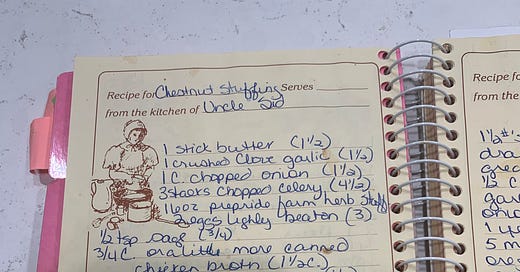 Recipe for Chestnut Stuffing Serves
from the kitchen of Uncle Sid
1 stick butter (1½)
1 crushed clove garlic (1½)
1 C. chopped onion (1½)
3 stacks chopped celery (4½)
farm herb Stuff
eggs lighly beaton (3)
½ tsp sage (3/4)
3/4 C. or a little more canned
chicken broth (1½ c.)
Recipe fo
from the
1½ #'s
dra
gre
½ c
gar
onio
1
5 m
ore